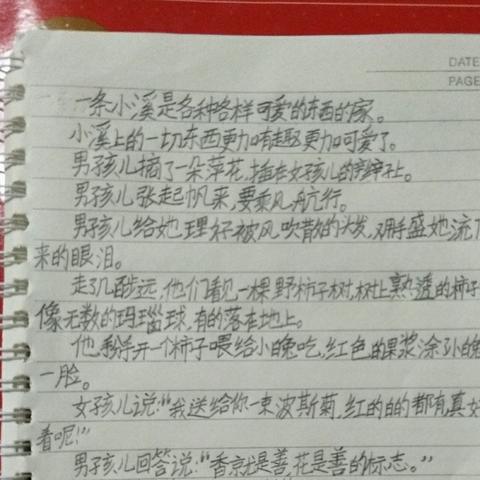 DATE
PAGE
一条小溪是各种各样可爱的东西的家。
小溪上的一切东西更加有趣更加可爱了。
男孩儿摘了一朵萍花,插在女孩儿的辫子上。
男孩儿张起帆来,要乘风航行。
男孩儿给她理好被风吹散的头发,用手盛她流下
来的眼泪。
走了几百步远,他们看见一棵野柿子树,树上熟透的柿子
像无数的玛瑙球,有的落在地上。
他掰开一个柿子喂给小兔吃,红色的果浆涂了小兔
一脸。
女孩儿说:“我送给你一束波斯菊,红的白的都有真好
看呢!”
男孩儿回答说:“香就是善,花是善的标志。”